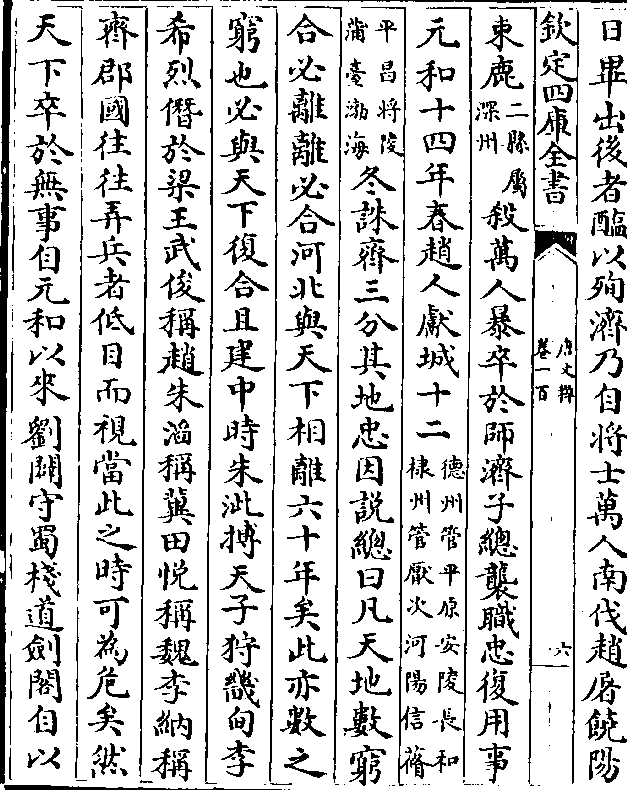 日畢出後者醢以殉濟乃自將士萬人南伐趙屠饒陽
欽定四庫全書
唐文粹
卷一百
六
束鹿二縣屬深州殺萬人暴卒於師濟子總襲職忠復用事
元和十四年春趙人獻城十二德州管平原安陵長和棣州管厭次河陽信蓨
平昌將陵蒲臺渤海冬誅齊三分其地忠因説總曰凡天地數窮
合必離離必合河北與天下相離六十年矣此亦數之
窮也必與天下復合且建中時朱泚搏天子狩畿甸李
希烈僭於梁王武俊稱趙朱滔稱冀田悦稱魏李納稱
齊郡國往往弄兵者低目而視當此之時可為危矣然
天下卒於無事自元和以來劉闢守蜀棧道劍閣自以